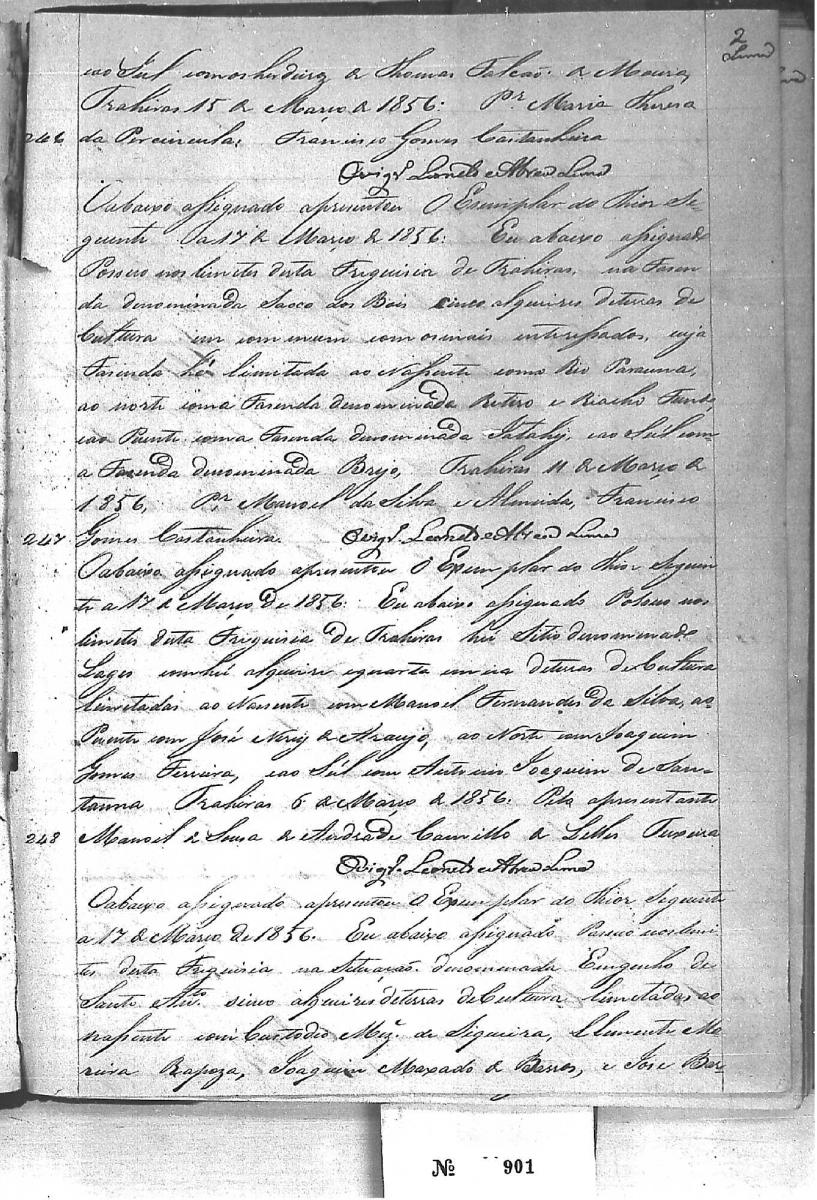 2
Lima
e ao Sul com os herdeiros de Thomas Falcaõ de Moura,
Trahiras 15 de Março de 1856. Pr Maria Thereza
246 da Porciuncula, Francisco Gomes Castanheira
O Vigrº Leonel de Abreu Lima
O abaixo assignado apresentou O Exemplar do Thior Se-
guente a 17 de Março de 1856. Eu abaixo assignado
Possuo nos limites desta Freguisia de Trahiras, na Fasen
da denominada Sacco dos Bois cinco alqueires de terras de
Cultura em commum com os mais enteressados, cuja
Fasenda hé limitada ao Nassente com o Rio Parauna,
ao norte com a Fasenda denominada Retiro e Riacho Fundo,
e ao Puente com a Fasenda denominada Jatahy, e ao Sul com
a Fasenda denominada Brejo, Trahiras 11 de Março de
1856, Pr Manoel da Silva e Almeida, Francisco
247 Gomes Castanheira. O Vigrº Leonel de Abreu Lima
O abaixo assignado apresentou O Exemplar do Thior Seguin
te a 17 de Março de 1856. Eu abaixo assignado Possuo nos
limites desta Freguisia de Trahiras hú Sitio denominado
Lages com hú alqueire e quarta e meia de terras de Cultura
limitadas ao Nascente com Manoel Fernandes da Silva, ao
Puente com José de Araujo, ao Norte com Joaquim
Gomes Ferreira, e ao Sul com Antonio Joaquim de San-
tanna Trahiras 6 de Março de 1856. Pela apresentante
248 Manoel de Sousa de Andrade Camillo de Lelles Teixeira
O Vigrº Leonel de Abreu Lima
O abaixo assignado apresentou O Exemplar do Thior Seguente
a 17 de Março de 1856. Eu abaixo assignado Possuo nos limi
tes desta Freguisia na Situação denominada Engenho de
Santo Antº. sinco alqueires de terras de Cultura limitadas ao
nassente com Custodio Miz. de Siqueira, Clemente Mo
reira Rapoza, Joaquim Maxado de Barros, e José Bar
Nº 901